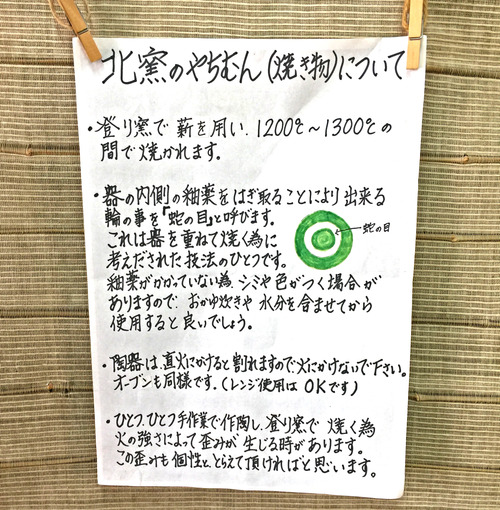 北窯のやちむん(焼き物)について
・登り窯で薪を用い、1200℃~1300℃の
間で焼かれます。
・器の内側の釉薬をはぎ取ることにより出来る
輪の事を「蛇の目」と呼びます。
これは器を重ねて焼く為に
考えだされた技法のひとつです。
蛇の目
釉薬がかかっていない為、シミや色がつく場合が
ありますので、おかゆ炊きや水分を含ませてから
使用すると良いでしょう。
・陶器は、直火にかけると割れますので火にかけないで下さい。
オーブンも同様です。(レンジ使用はOKです)
・ひとつ、ひとつ手作業で作陶し、登り窯で焼く為
火の強さによって歪みが生じる時があります。
この歪みも個性と、とらえて頂ければと思います。